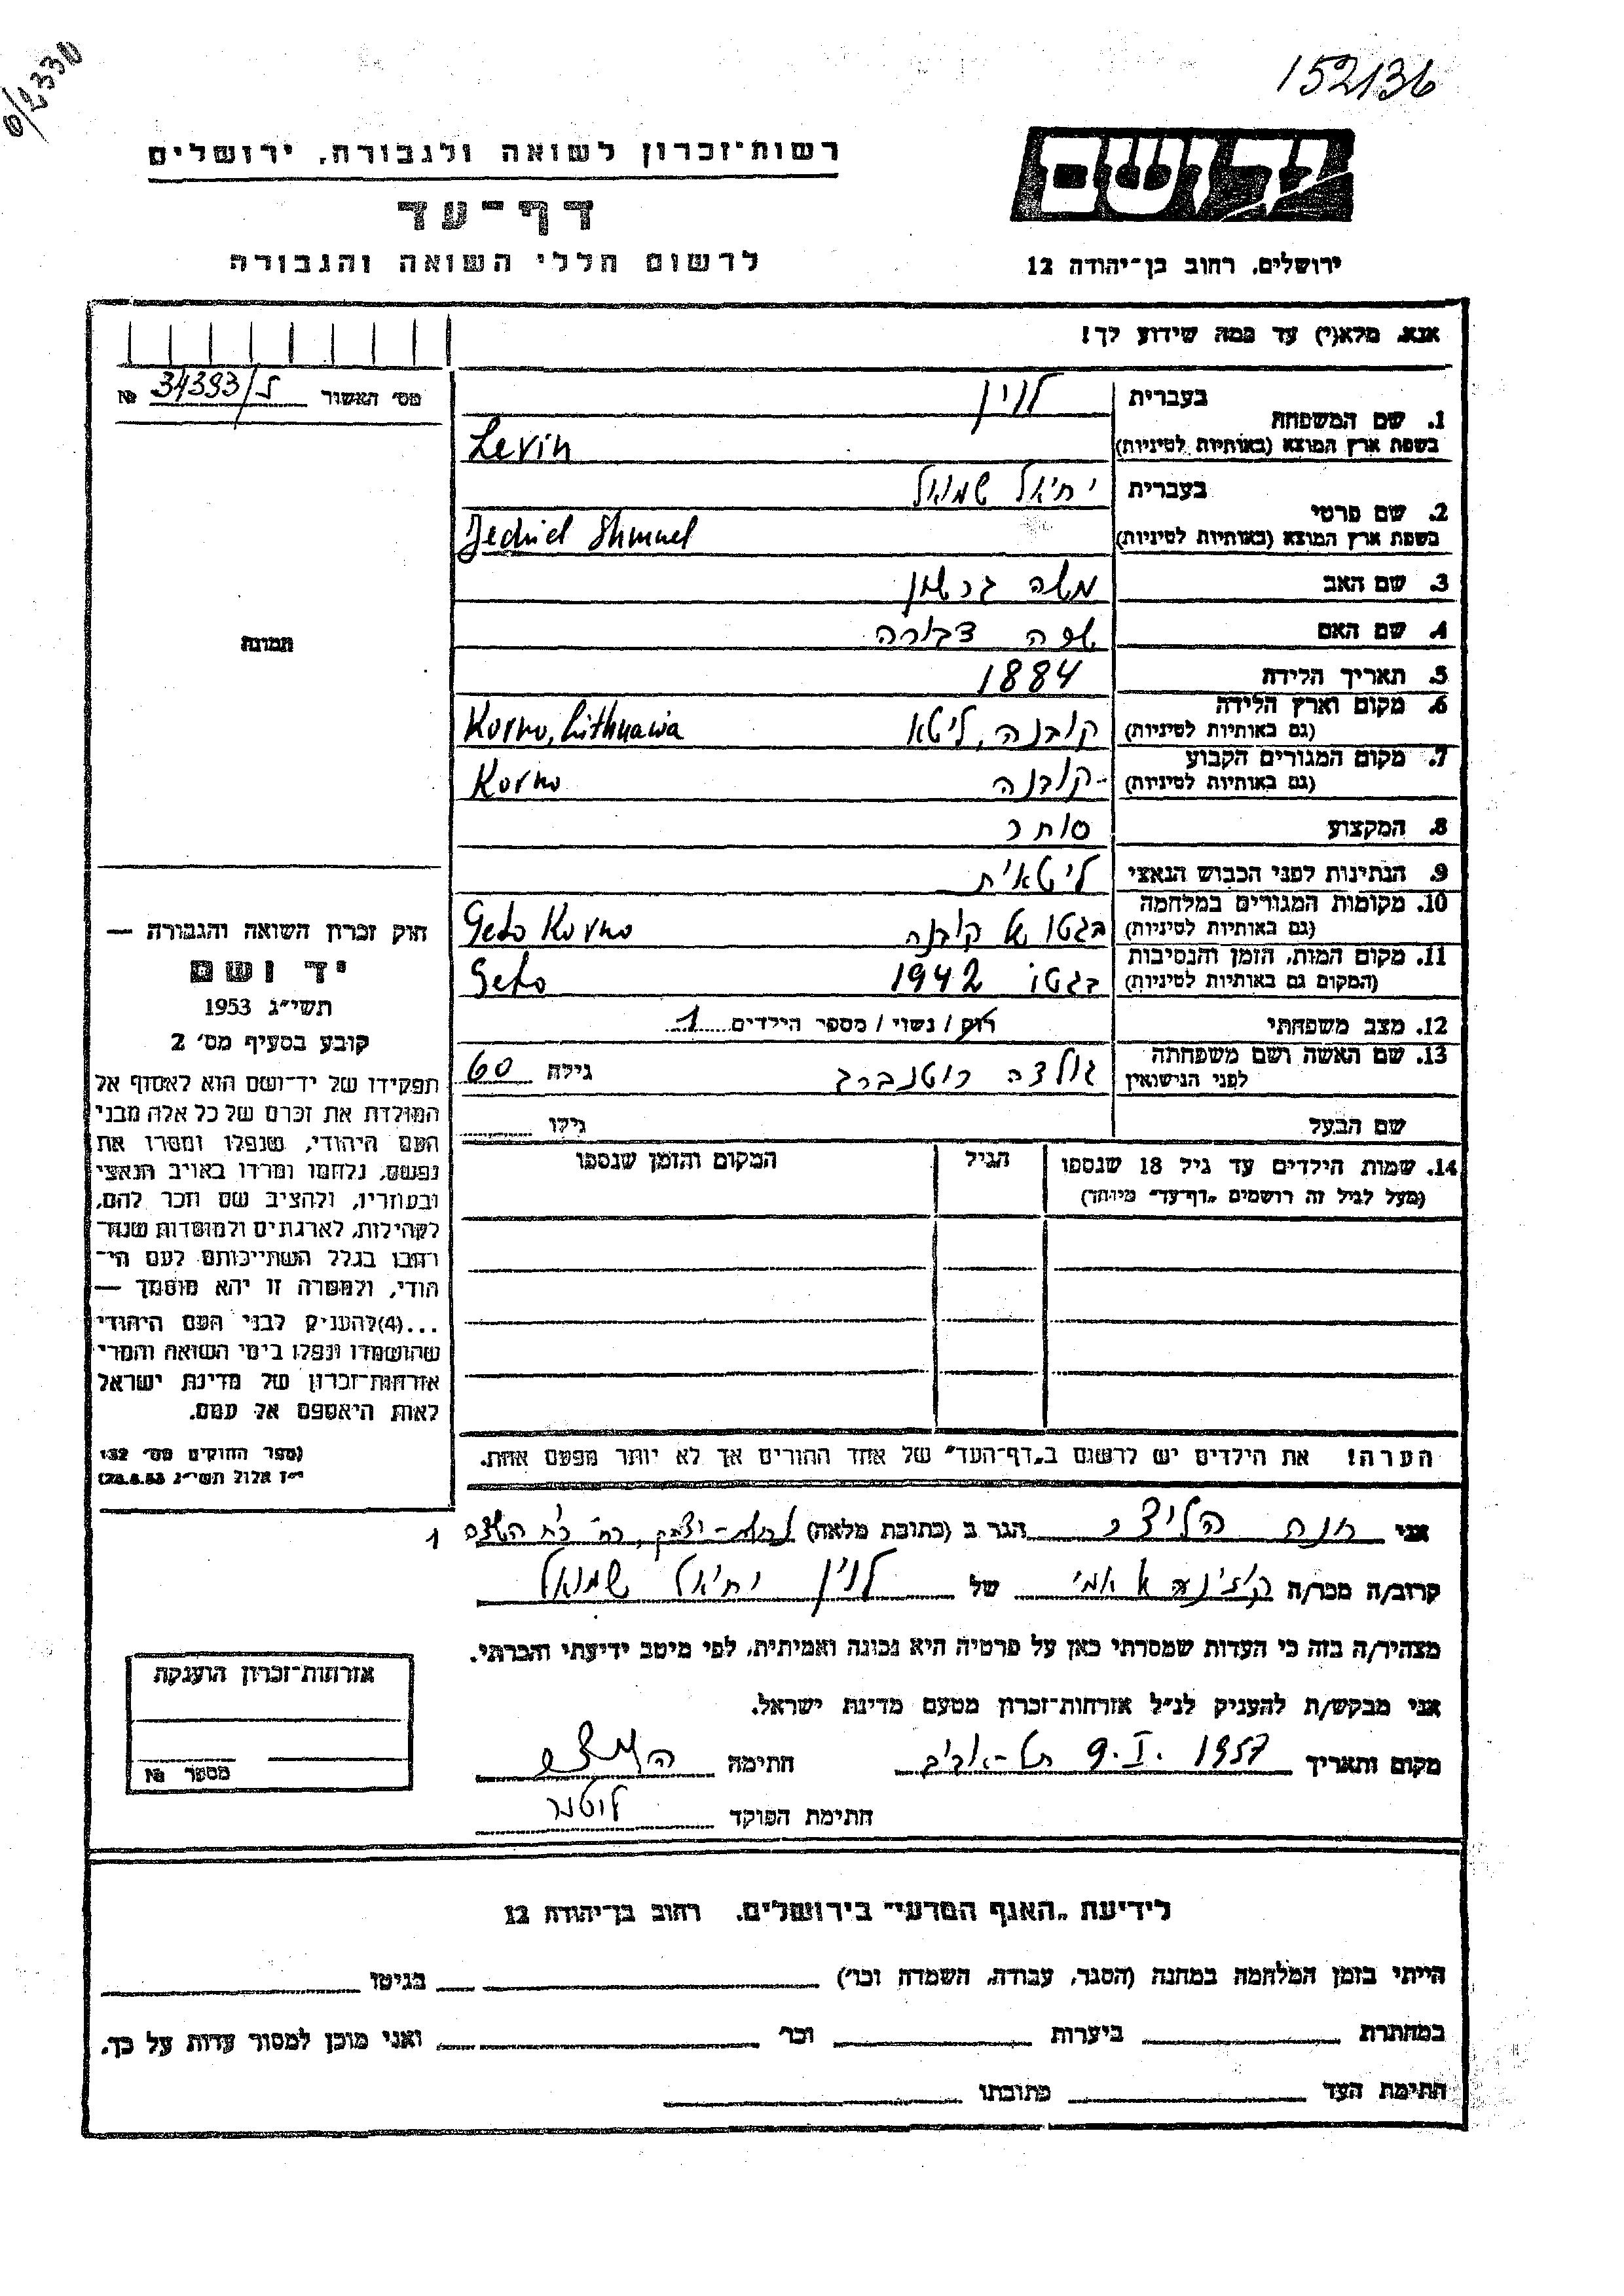 0/2330
152136
יד ושם
רשות־זכרון לשואה ולגבורה, ירושלים
דף־עד
לרשום חללי השואה והגבורה
ירושלים, רחוב בן־יהודה 12
אנא, מלא(י) עד כמה שידוע לך!
מס׳ האשור 34393/ל №
1. שם המשפחה
בעברית לוין
בשפת ארץ המוצא (באותיות לטיניות) Levin
2. שם פרטי
בעברית יחיאל שמואל
בשפת ארץ המוצא (באותיות לטיניות) Jechiel Shmuel
3. שם האב משה גרשון
4. שם האם שפה דבורה
5. תאריך הלידה 1884
6. מקום וארץ הלידה
(גם באותיות לטיניות) קובנה, ליטא Kovno, Lithuania
7. מקום המגורים הקבוע
(גם באותיות לטיניות) קובנה Kovno
8. המקצוע סוחר
9. הנתינות לפני הכבוש הנאצי ליטאית
10. מקומות המגורים במלחמה
(גם באותיות לטיניות) בגטו של קובנה Geto Kovno
11. מקום המות, הזמן והנסיבות
(המקום גם באותיות לטיניות) בגטו 1942 Geto
12. מצב משפחתי רוק / נשוי / מספר הילדים 1
13. שם האשה ושם משפחתה
לפני הנישואין גולדה רוטנברג גילה 60
שם הבעל גילו
14. שמות הילדים עד גיל 18 שנספו
(מעל לגיל זה רושמים „דף־עד״ מיוחד)
הגיל
המקום והזמן שנספו
תמונה
חוק זכרון השואה והגבורה —
יד ושם
תשי״ג 1953
קובע בסעיף מס׳ 2
תפקידו של יד־ושם הוא לאסוף אל
המולדת את זכרם של כל אלה מבני
העם היהודי, שנפלו ומסרו את
נפשם, נלחמו ומרדו באויב הנאצי
ובעוזריו, ולהציב שם וזכר להם,
לקהילות, לארגונים ולמוסדות שנח־
רבו בגלל השתייכותם לעם הי־
הודי, ולמטרה זו יהא מוסמך —
...(4)להעניק לבני העם היהודי
שהושמדו ונפלו בימי השואה והמרי
אזרחות־זכרון של מדינת ישראל
לאות היאספם אל עמם.
(ספר החוקים מס׳ 132
י״ז אלול תשי״ג 28.8.53)
הערה! את הילדים יש לרשום ב„דף־העד״ של אחד ההורים אך לא יותר מפעם אחת.
אני חנה הגר ב (כתובת מלאה) 1
קרוב/ה מכר/ה קוזינה של אמי של לוין יחיאל שמואל
מצהיר/ה בזה כי העדות שמסרתי כאן על פרטיה היא נכונה ואמיתית, לפי מיטב ידיעתי והכרתי.
אני מבקש/ת להעניק לנ״ל אזרחות־זכרון מטעם מדינת ישראל.
מקום ותאריך תל-אביב 9.I.1957 חתימה
חתימת הפוקד
אזרחות־זכרון הוענקה
מספר №
לידיעת „האגף המדעי״ בירושלים, רחוב בן־יהודה 12
הייתי בזמן המלחמה במחנה (הסגר, עבודה, השמדה וכו׳) בגיטו
במחתרת ביערות וכו׳ ואני מוכן למסור עדות על כך.
חתימת העד כתובתו